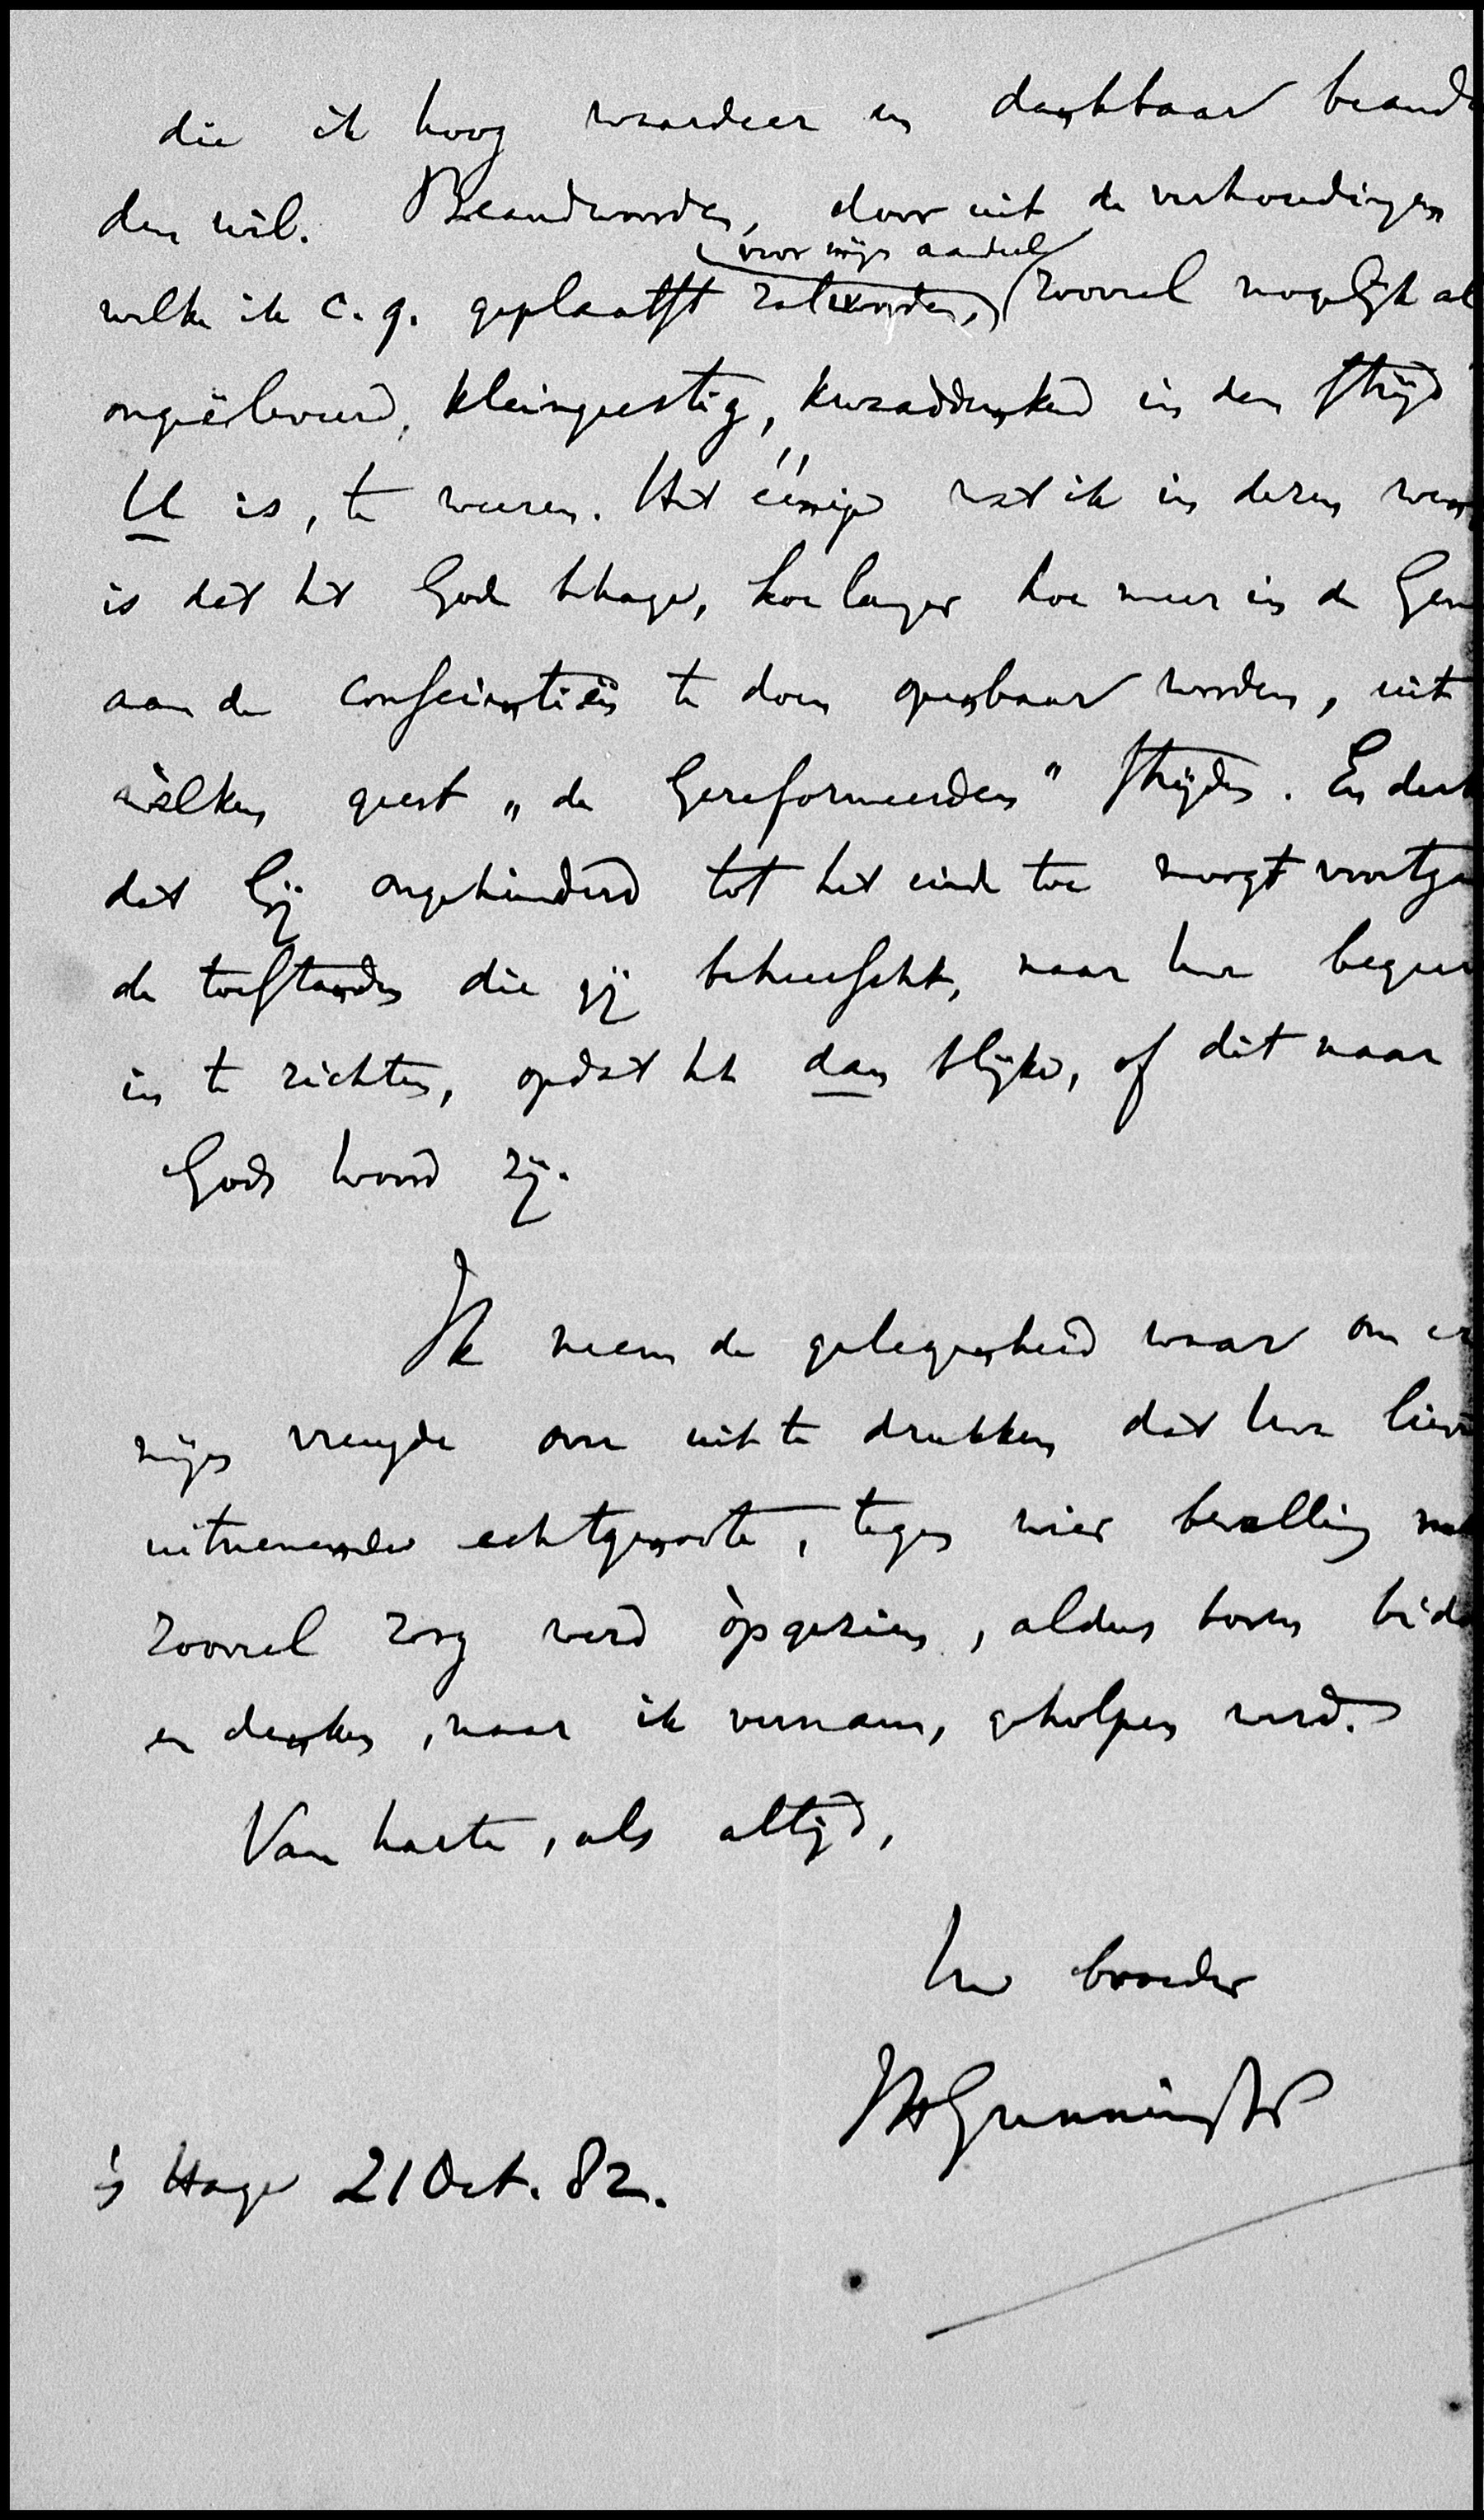 die ik hoog waardeer en dankbaar beand
den wil. Beandwoorden, door uit de verhoudingen
voor mijn aandeel
welke ik c.q. geplaatst zal worden, zooveel mogelijk al
ongeëleveerd, kleingeestig, kwaaddenkend in den strijd
U is, te weeren. Het éénige wat ik in dezen wen
is dat het Gode behage, hoe langer hoe meer in de Gem
aan de conscientiën te doen openbaar worden, uit
wèlken geest „de Gereformeerden" strijden. En
dat Gij ongehinderd tot het einde toe moogt voortga
de toestanden die gij beheerscht, naar Uw begeer
in te richten, opdat het dan blijke, of dit naar
Gods woord zij.
Ik neem de gelegenheid waar om er
mijn vreugde over uit te drukken dat Uwe lieve
uitnemende echtgenoote, tegen wier bevalling met
zooveel zorg werd òpgezien, aldus boven bidd
en denken, naar ik vernam, geholpen werd.
Van harte, als altijd,
Uw broeder
JHGunning Jr
's Hage 21 Oct. 82.